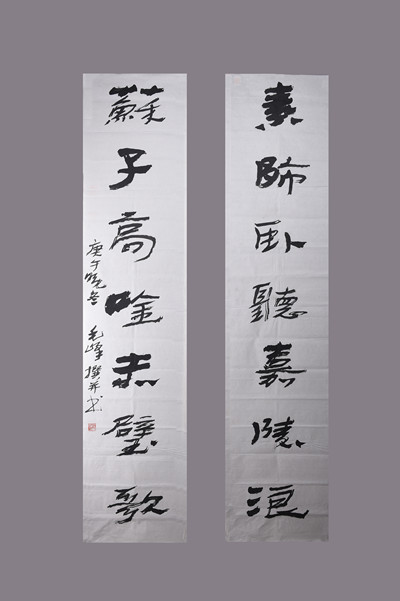 素師卧聽嘉陵浪
蘇子高唫赤壁歌
庚午晚冬 毛峰撰并書